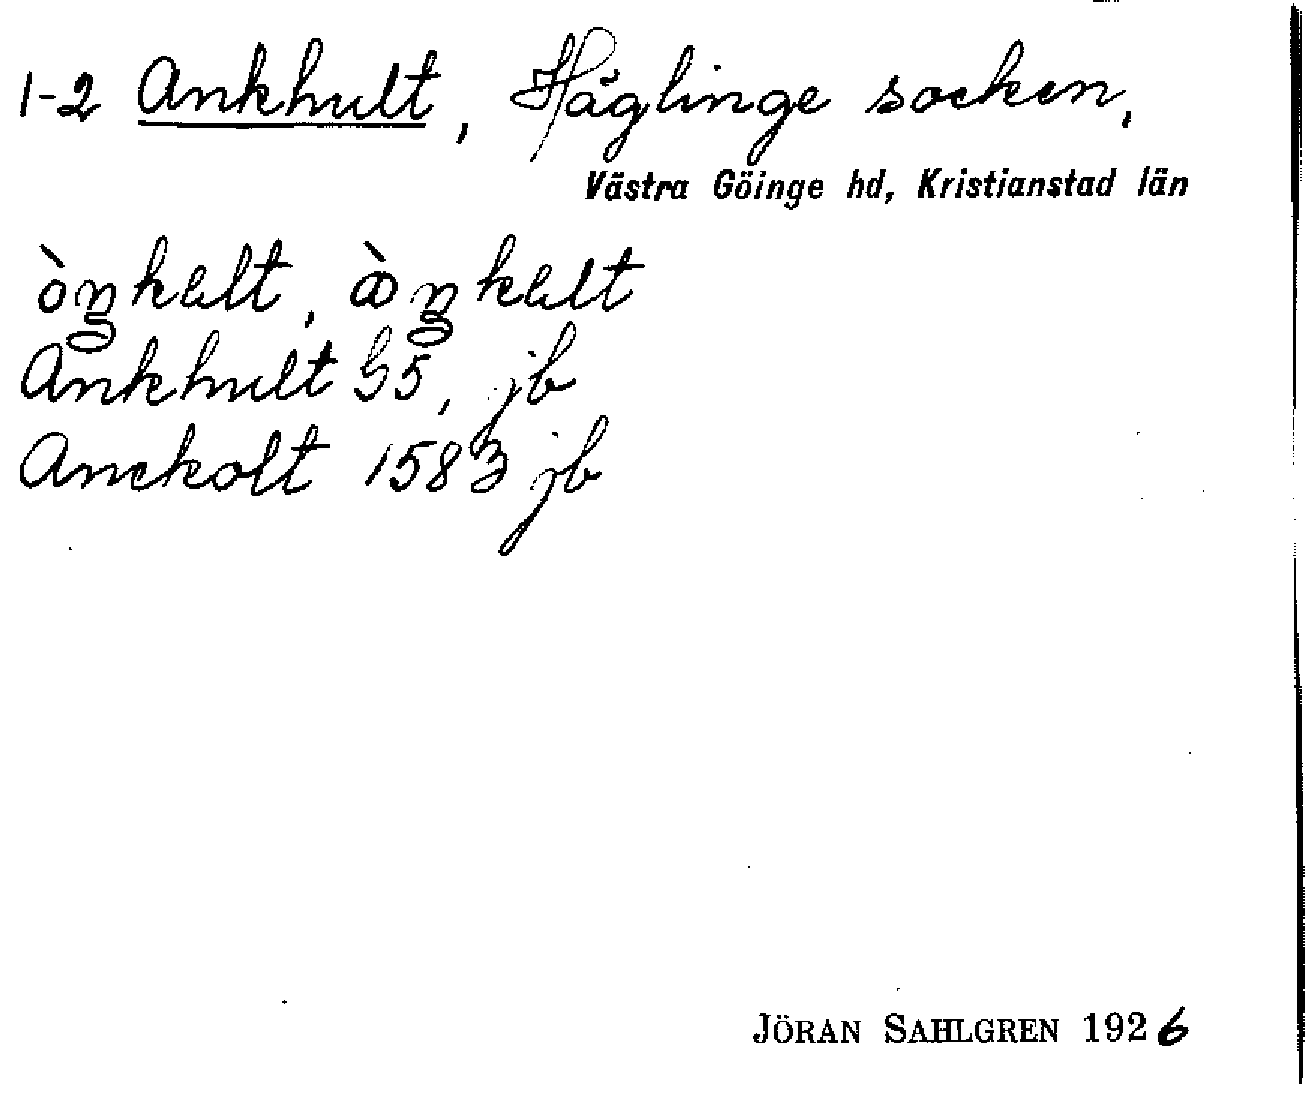 1-2 Ankhult, Häglinge socken,
Västra Göinge hd, Kristianstad län
Ankhult G5, jb
Anckolt 1583 jb
JÖRAN SAHLGREN 1926